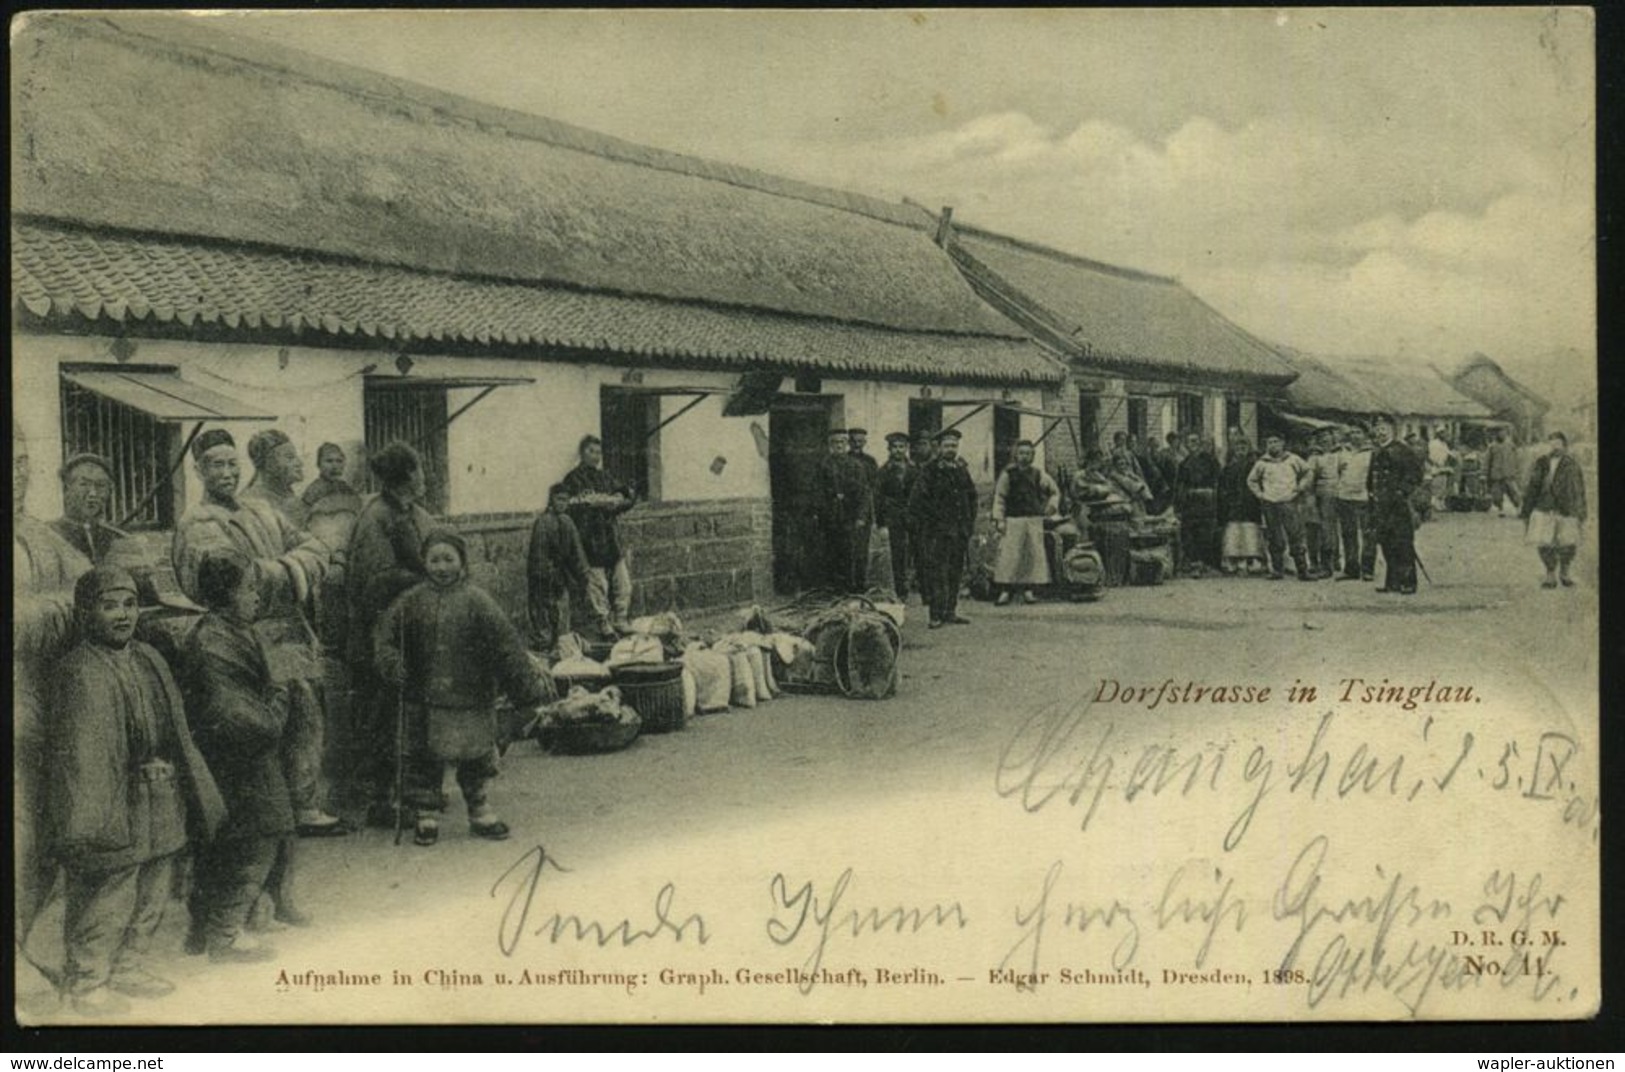 Dorfstrasse in Tsingtau.
Schanghai, d. 5. IX.
00.
Sende Ihnen herzliche Grüße Ihr
D. R. G. M.
No. 11.
Aufnahme in China u. Ausführung: Graph. Gesellschaft, Berlin. — Edgar Schmidt, Dresden, 1898.
www.delcampe.net
wapler-auktionen